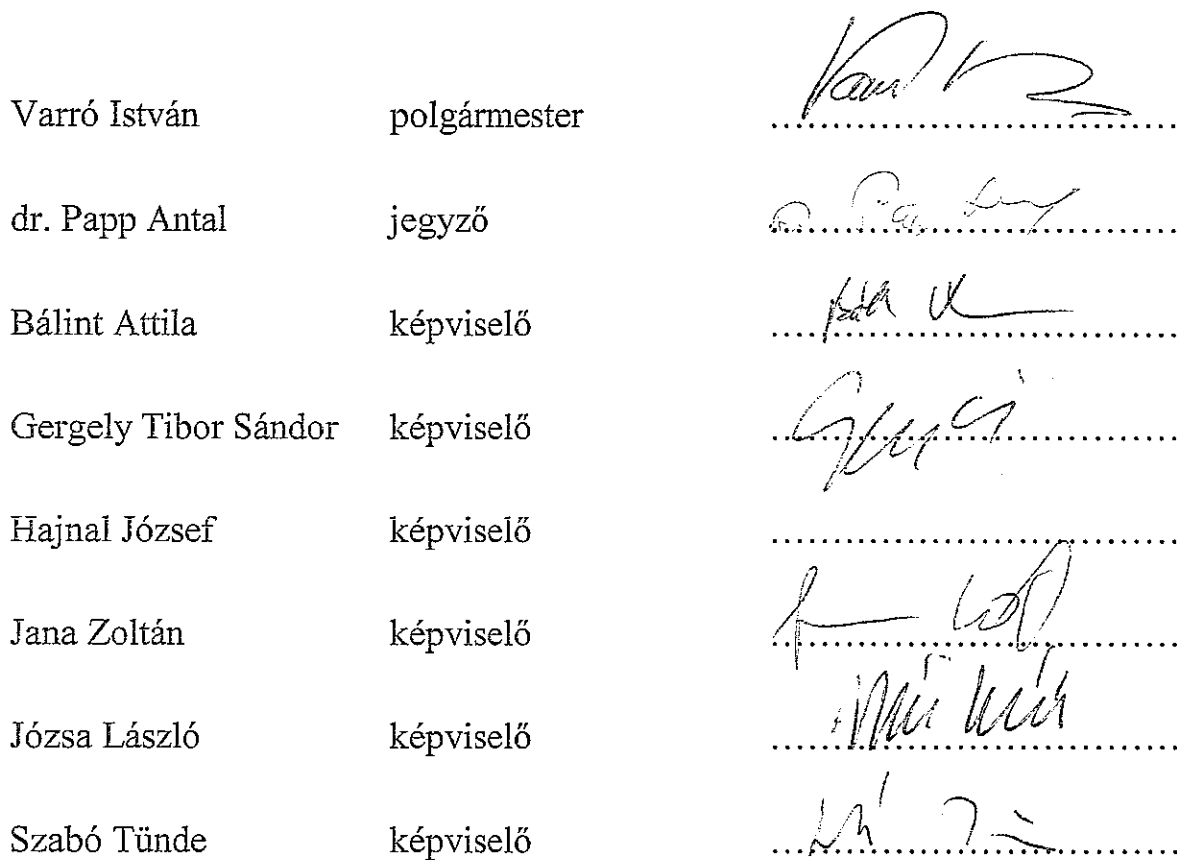 Varró István polgármester ........................................
dr. Papp Antal jegyző ........................................
Bálint Attila képviselő ........................................
Gergely Tibor Sándor képviselő ........................................
Hajnal József képviselő ........................................
Jana Zoltán képviselő ........................................
Józsa László képviselő ........................................
Szabó Tünde képviselő ........................................